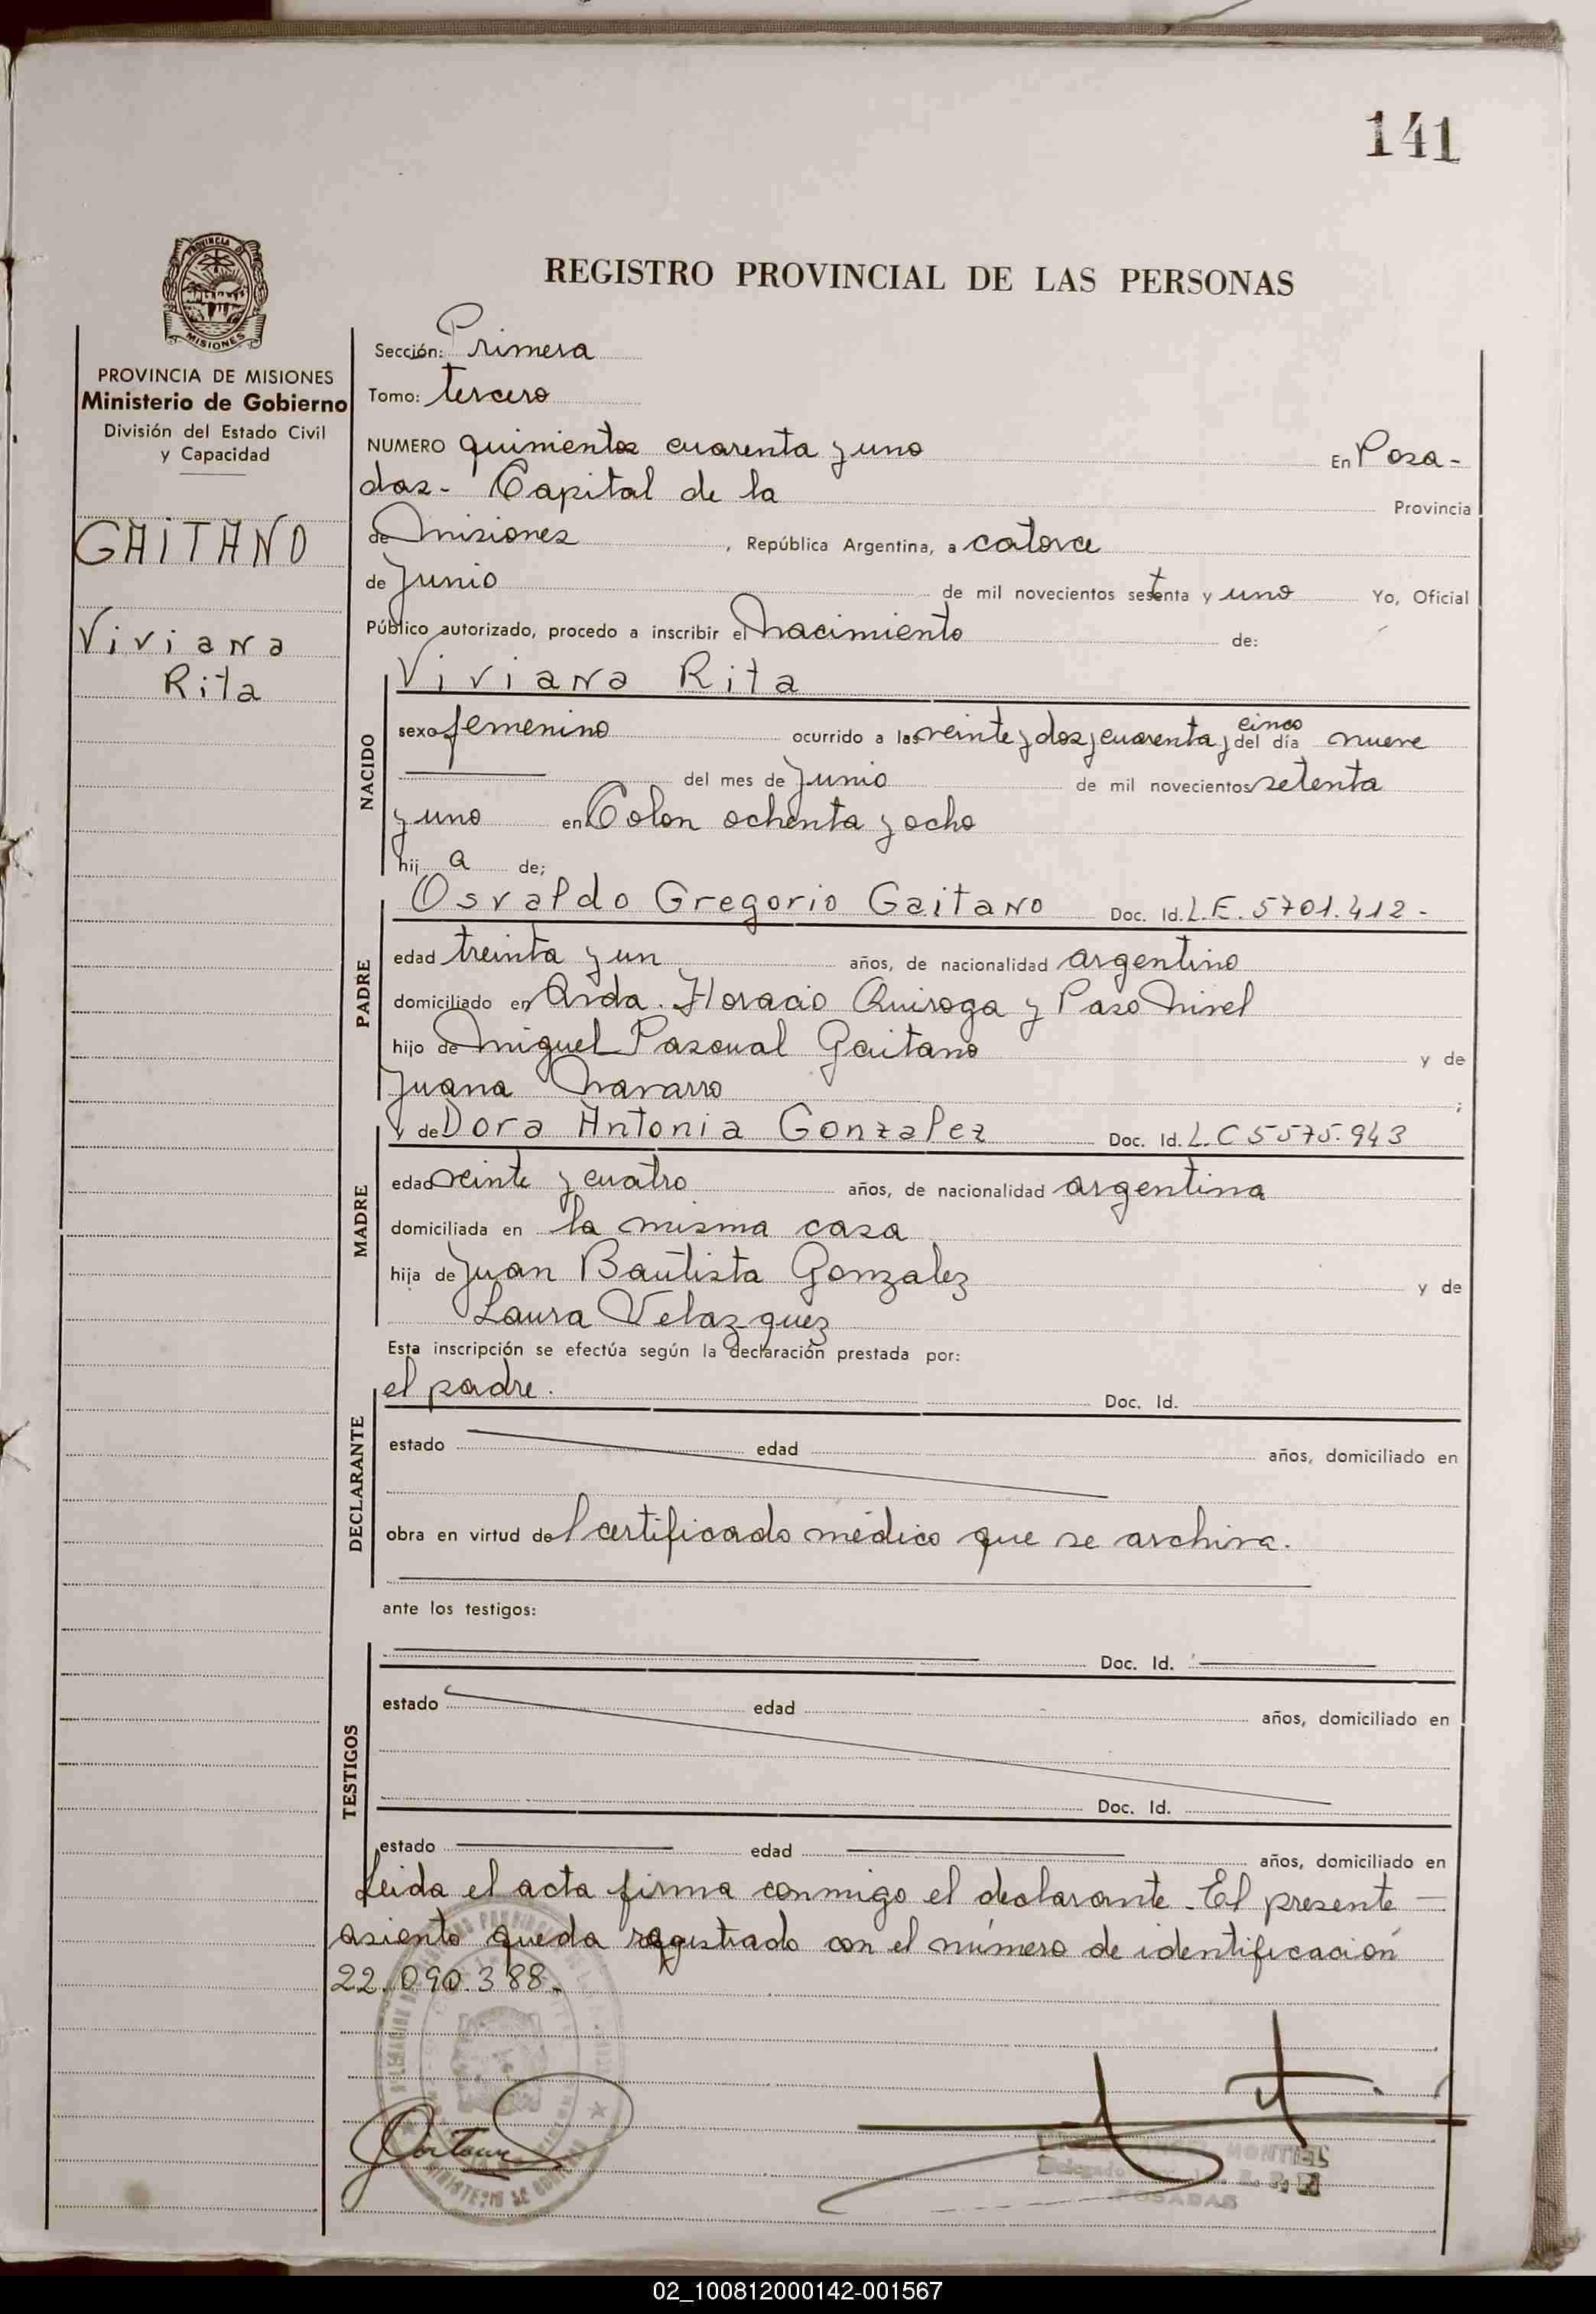 141
PROVINCIA DE
MISIONES
REGISTRO PROVINCIAL DE LAS PERSONAS
PROVINCIA DE MISIONES
Ministerio de Gobierno
División del Estado Civil
y Capacidad
GAITANO
Viviana
Rita
Sección: Primera
Tomo: tercero
NUMERO quinientos cuarenta y uno En Posa-
das- Capital de la Provincia
de Misiones, República Argentina, a catorce
de Junio de mil novecientos setenta y uno Yo, Oficial
Público autorizado, procedo a inscribir el Nacimiento de:
NACIDO
Viviana Rita
sexo femenino ocurrido a las veinte y dos y cuarenta y cinco del día nueve
del mes de Junio de mil novecientos setenta
y uno en Colon ochenta y ocho
hij a de;
PADRE
Osvaldo Gregorio Gaitano Doc. Id. L.E. 5701.412-
edad treinta y un años, de nacionalidad argentino
domiciliado en Avda. Horacio Quiroga y Paso Nivel
hijo de Miguel Pascual Gaitano y de
Juana Navarro ;
MADRE
y de Dora Antonia Gonzalez Doc. Id. L.C 5575.943
edad veinte y cuatro años, de nacionalidad argentina
domiciliada en la misma casa
hija de Juan Bautista Gonzalez y de
Laura Velazquez
Esta inscripción se efectúa según la declaración prestada por:
DECLARANTE
el padre. Doc. Id.
estado edad años, domiciliado en
obra en virtud del certificado médico que se archiva.
ante los testigos:
TESTIGOS
Doc. Id.
estado edad años, domiciliado en
Doc. Id.
estado edad años, domiciliado en
Leida el acta firma conmigo el declarante. El presente
asiento queda registrado con el número de identificación
22.090.388-
MONTIEL
Delegado
POSADAS
02_100812000142-001567